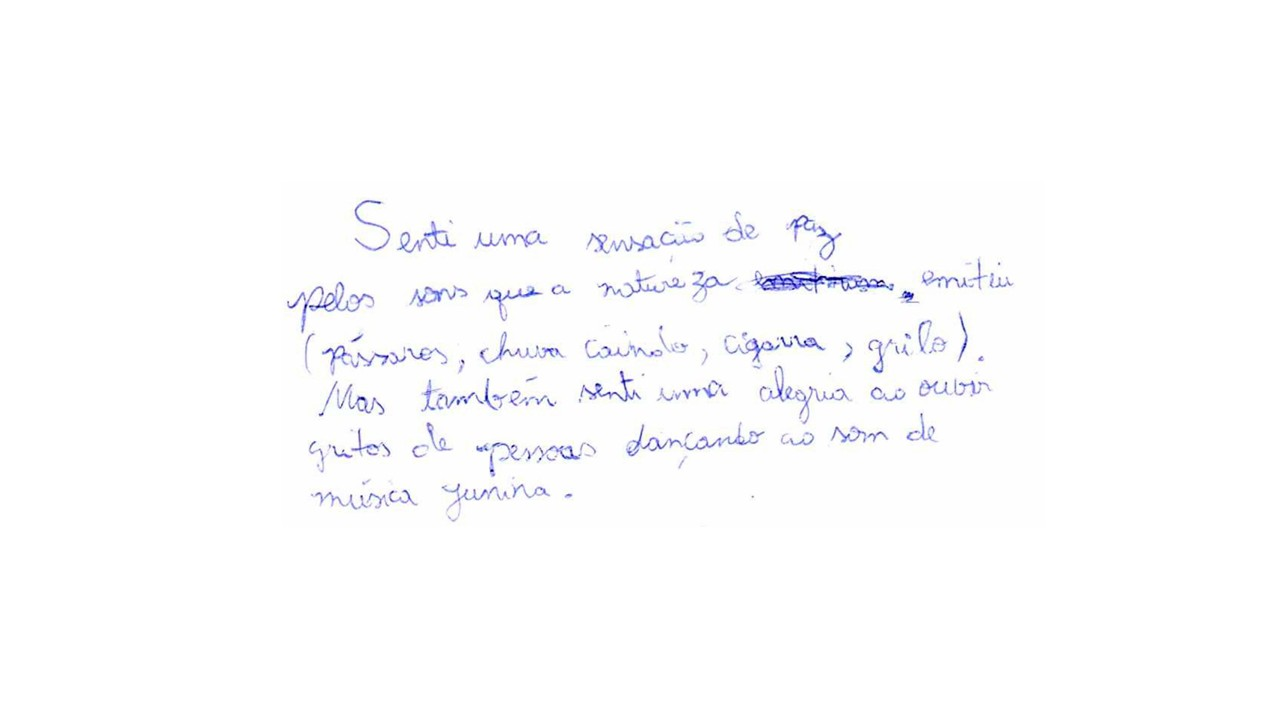 Senti uma sensação de paz
pelos sons que a natureza emitiu
(pássaros, chuva caindo, cigarra, grilo).
Mas também senti uma alegria ao ouvir
gritos de pessoas dançando ao som de
música junina.